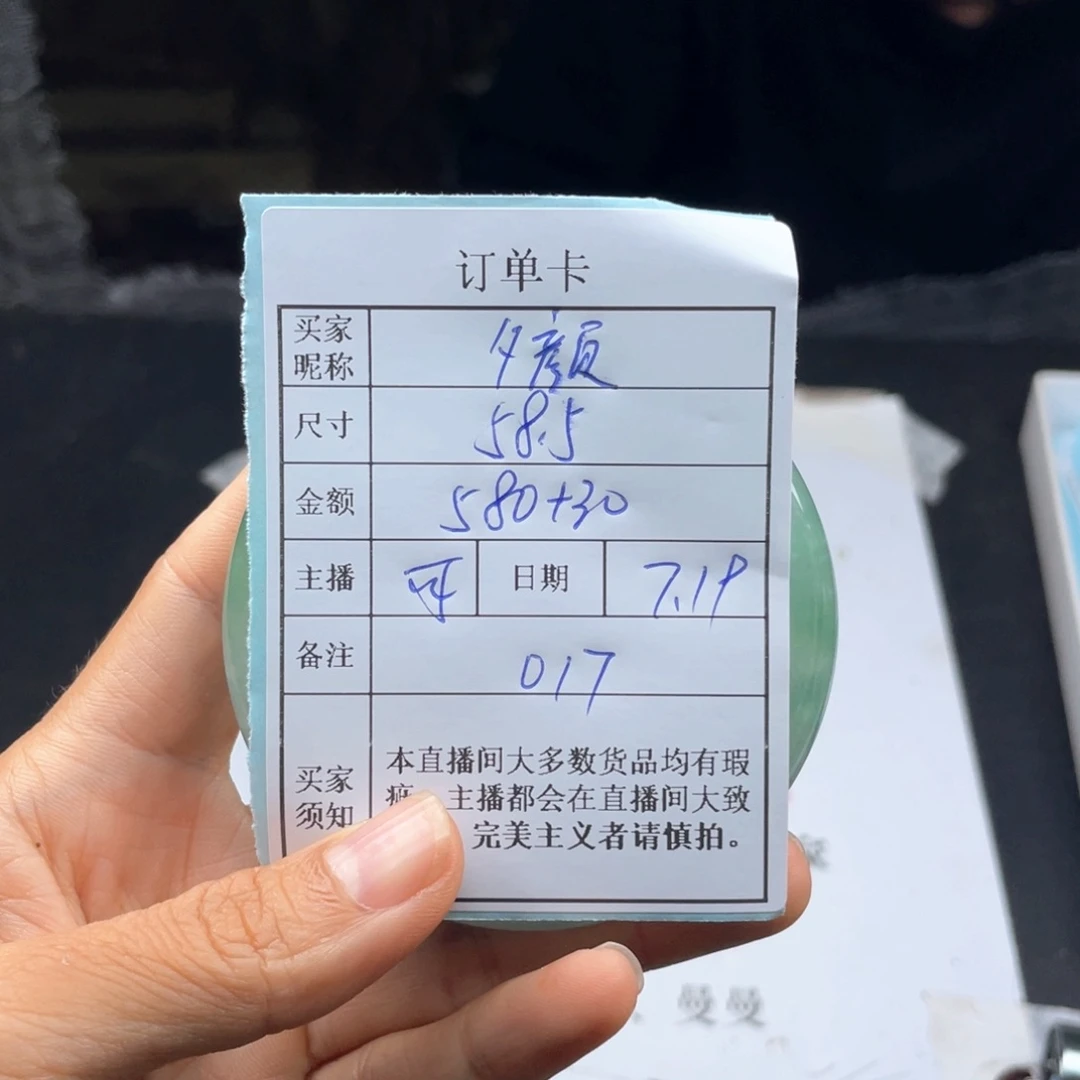 订单卡
买家
昵称
夕颜
尺寸
58.5
金额
580+30
主播
日期
7.19
备注
017
买家
须知
本直播间大多数货品均有瑕
主播都会在直播间大致
完美主义者请慎拍。
曼曼